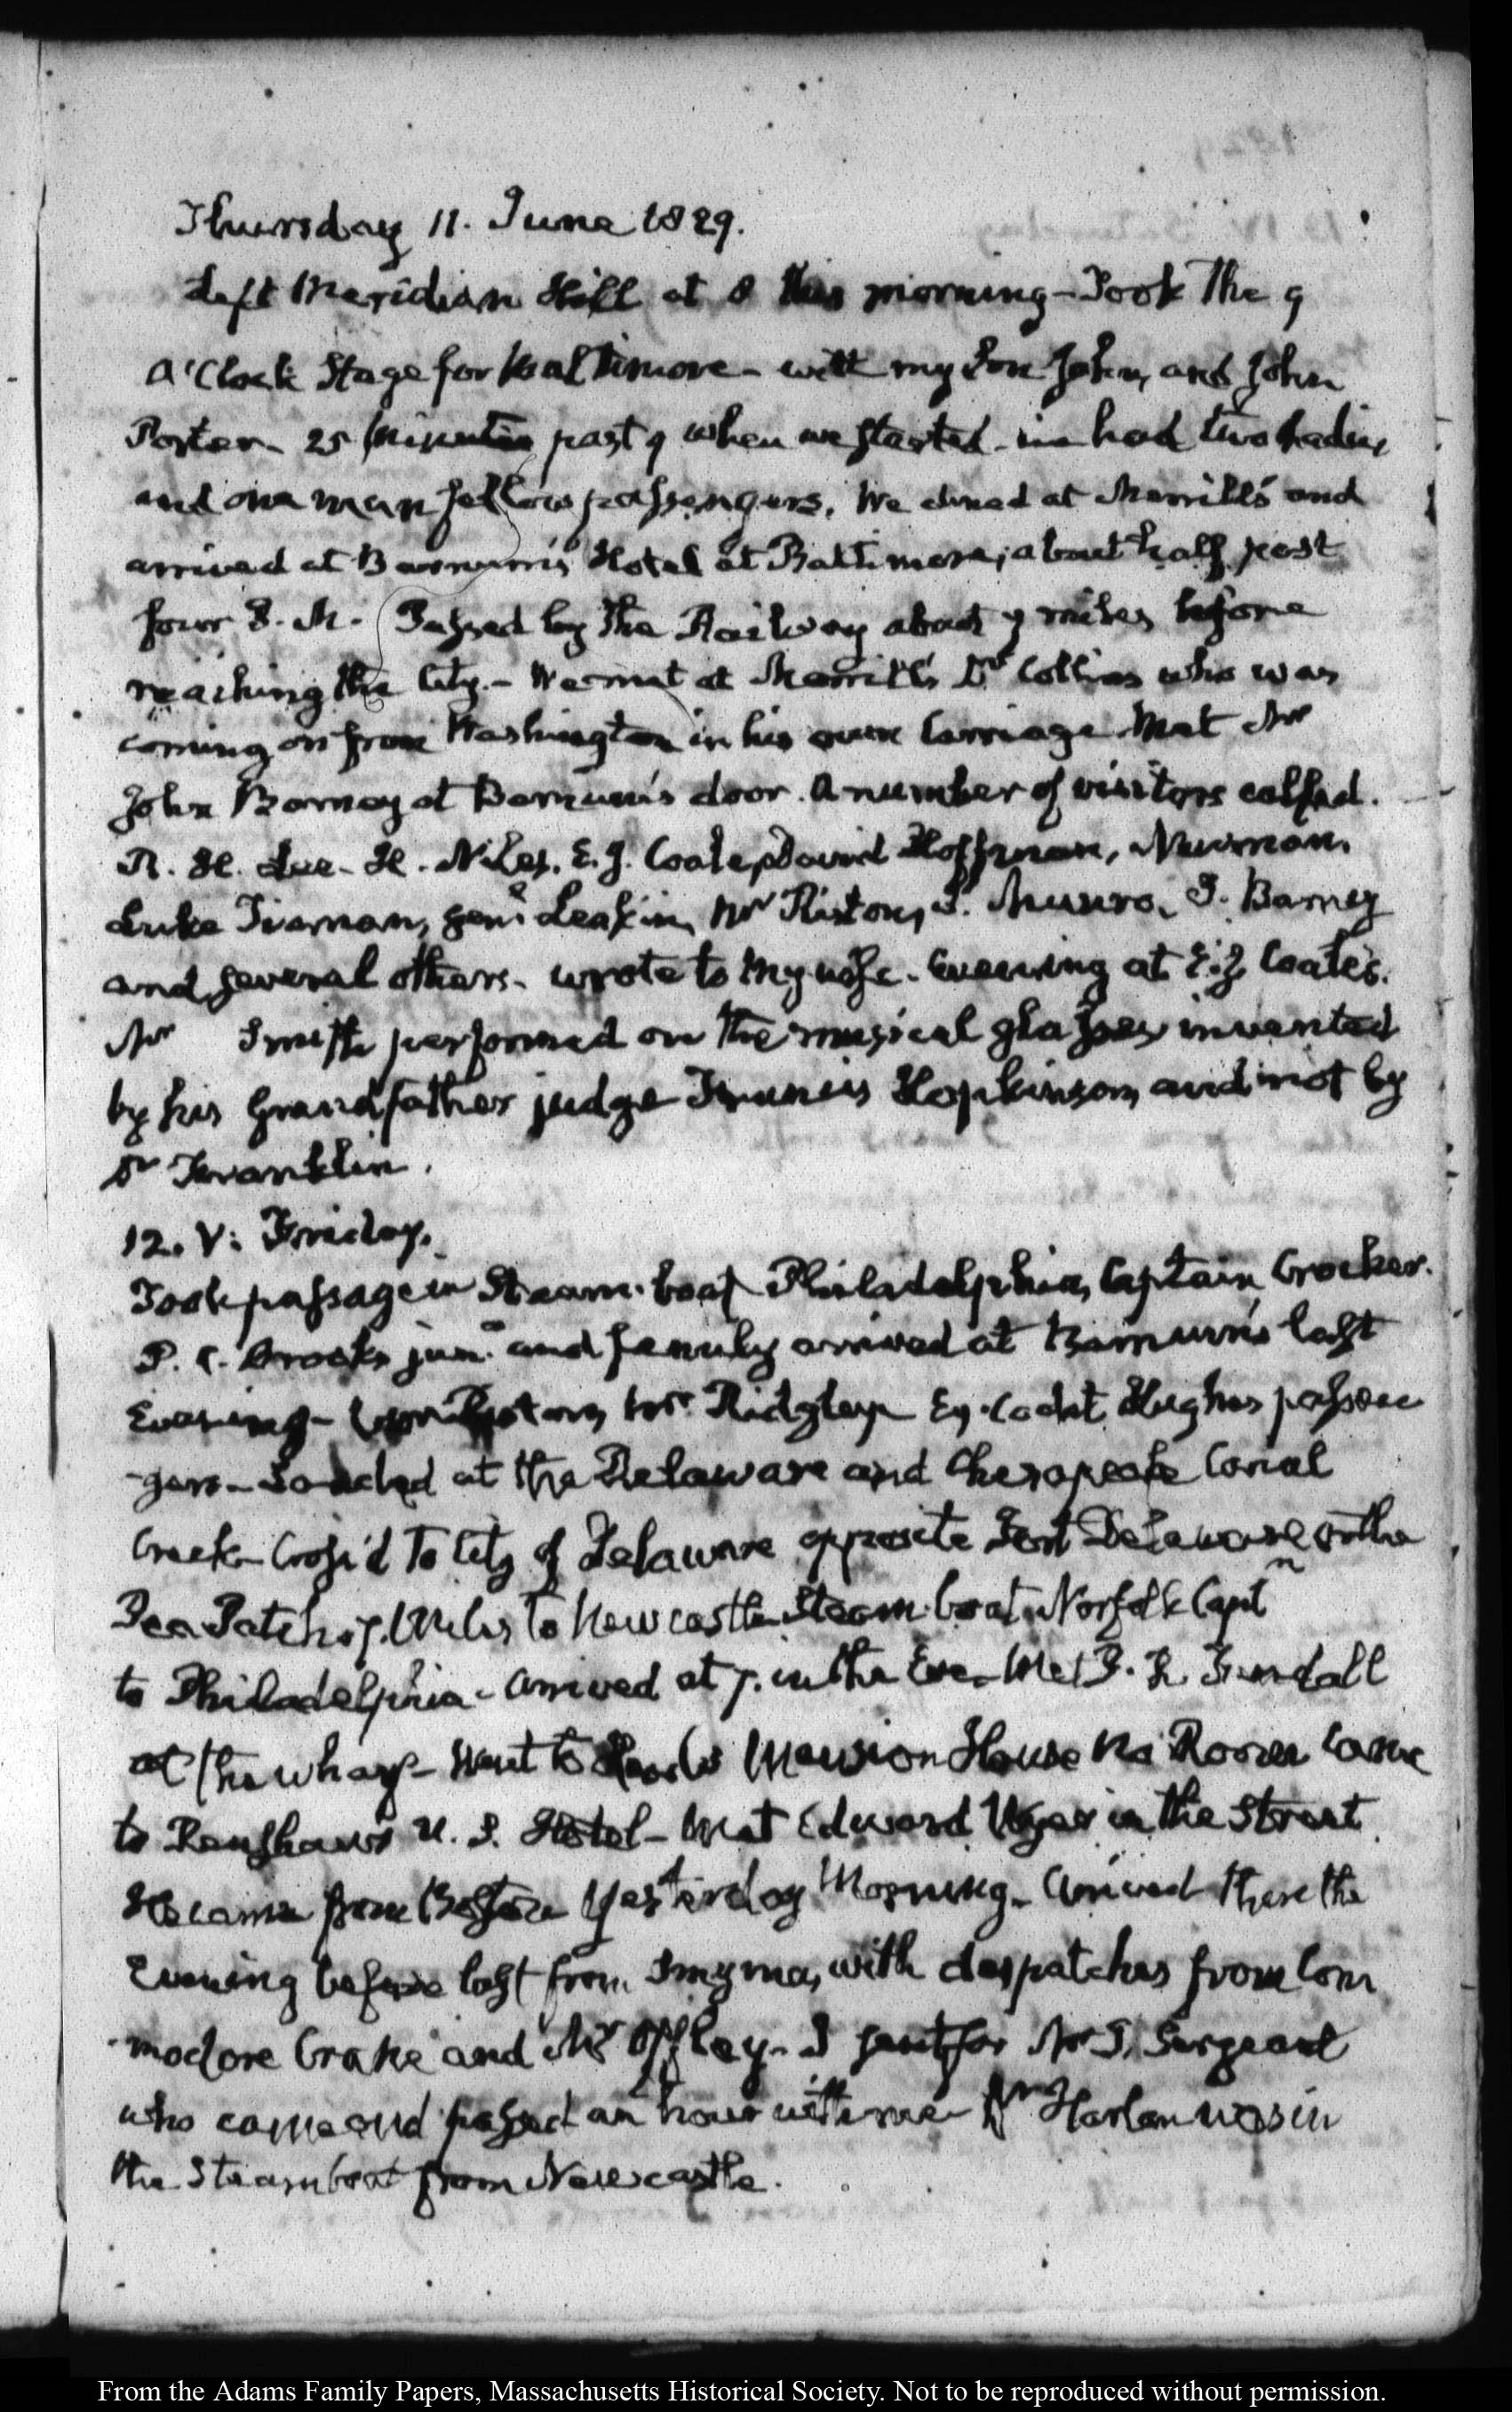 Thursday 11. June 1829.
Left Meridian Hill at 8 this morning – Took the 9
O'Clock Stage for Baltimore – with my Son John, and John
Foster – 25 minutes past 9 when we started – we had two ladies
and one man fellow passengers. We dined at Merrill's and
arrived at Barnum's Hotel at Baltimore, about half past
four P. M. Passed by the Railway about 7 miles before
reaching the City. – We met at Merrill's Dr Collins who was
coming on from Washington in his own Carriage Met Mr
John Barney at Barnum's door. A number of visitors called.
R. H. Lee – H. Niles, E. J. Coale, David Hoffman, Newman,
Luke Tiernan, Genl Leakin, Mr Riston, I. Munro, J. Barney
and several others – wrote to my wife. Evening at E. J. Coale's.
Mr Smith performed on the musical glasses invented
by his Grandfather judge Francis Hopkinson, and not by
Dr Franklin.
12. V: Friday.
Took passage in Steam-boat Philadelphia, Captain Crocker.
P. C. Brooks junr and family arrived at Barnum's last
Evening – Mr Ridgley Ex-Cadet Hughes passen
gers – Landed at the Delaware and Chesapeake Canal
Creek – Cross'd to City of Delaware opposite Fort Delaware on the
Pea Patch, 7. Miles to Newcastle Steam-boat Norfolk Captn
to Philadelphia – arrived at 7. in the Eve – Met
at the wharf – Went to Head's Mansion House No Room Came
to Renshaw's U. S. Hotel – Met Edward Wyer in the Street
He came from Boston yesterday Morning – Arrived there the
Evening before last from Smyrna, with despatches from Com
modore Crane and Mr Offley – I sent for Mr J. Sergeant
who came and passed an hour with me – Dr Harlan was in
the Steamboat from Newcastle.
From the Adams Family Papers, Massachusetts Historical Society. Not to be reproduced without permission.